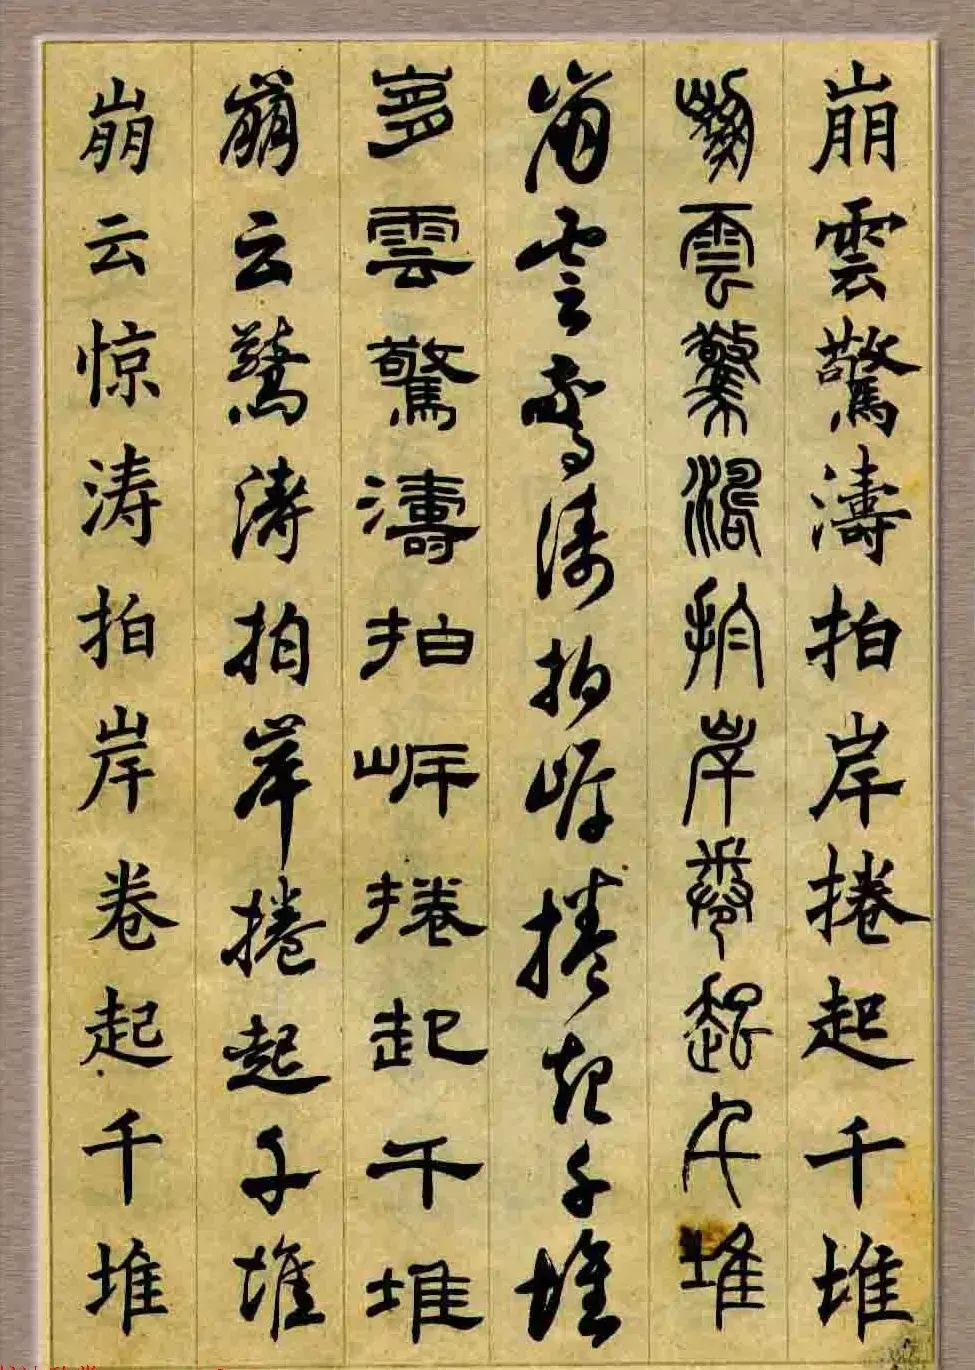 崩雲驚濤拍岸捲起千堆
崩雲驚濤拍岸捲起千堆
崩雲驚濤拍岸捲起千堆
崩雲驚濤拍岸捲起千堆
崩云驚涛拍岸捲起千堆
崩云惊涛拍岸卷起千堆